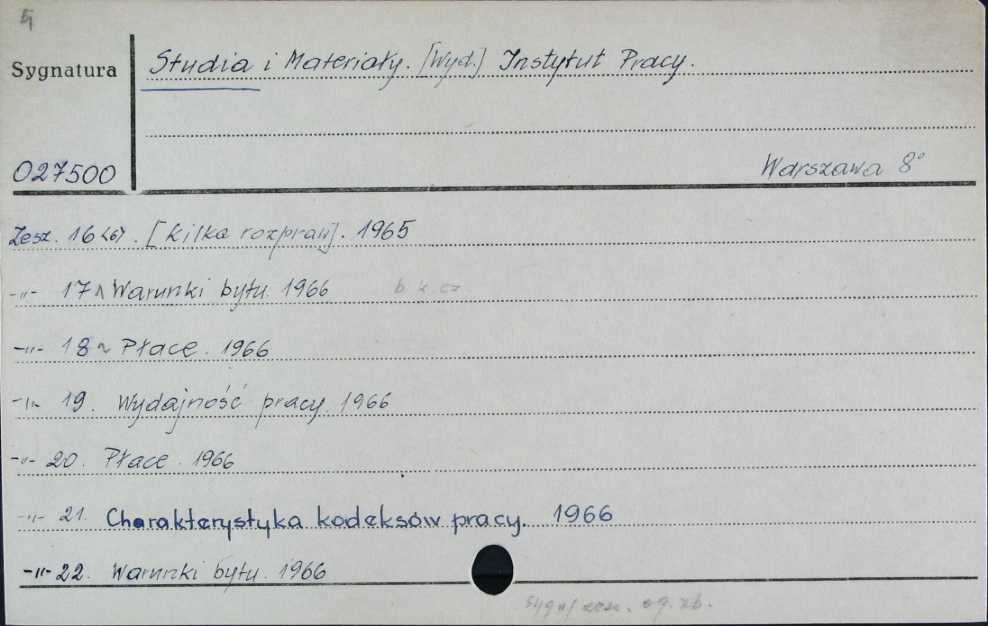 Sygnatura
Studia i Materiały. [Wyd.] Instytut Pracy.
027500
Warszawa 8°
Zesz. 16 <6>. [kilka rozpraw]. 1965
-"- 17 Warunki bytu. 1966 b. k. cz.
-"- 18 Płace. 1966
-"- 19. Wydajność pracy. 1966
-"- 20. Płace. 1966
-"- 21. Charakterystyka kodeksów pracy. 1966
-"- 22. Warunki bytu. 1966